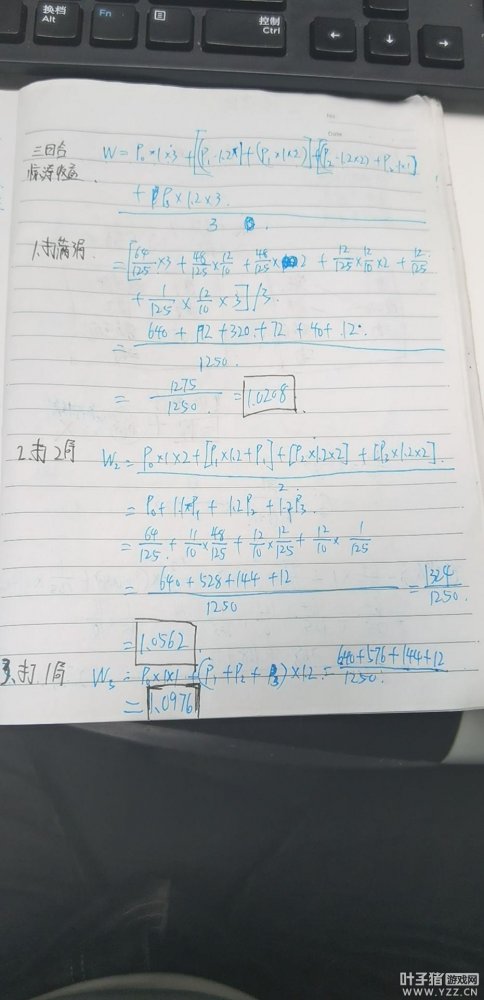 换档
Alt
Fn
控制
Ctrl
No.
Date
三回合 W = P₀×1×3 + [(P₁×1.2×1)+(P₁×1×2)]
惊涛收益
+ P₃×1.2×3
3
1.打满
= [64/125×3 + 48/125×12/10 + 48/125×2 + 12/125×12/10×2 + 12/125
+ 1/125×12/10×3]/3
= 1250
= 1275/1250 = 1.0208
2.打2局 W₂ = P₀×1×2+[P₁×1.2+P₁]+[P₂×1.2×2]+[P₂×1.2×2]
2
= P₀+1.1P₁+1.2P₂+1.2P₃
= 64/125 + 11/10×48/125 + 12/10×12/125 + 12/10×1/125
= 640+528+144+12/1250 = 1324/1250
= 1.0562
3.打1局 W₃ = P₀×1×1+(P₁+P₂+P₃)×1.2 = 640+576+144+12/1250
= 1.0976
叶子猪游戏网
WWW.YZZ.CN